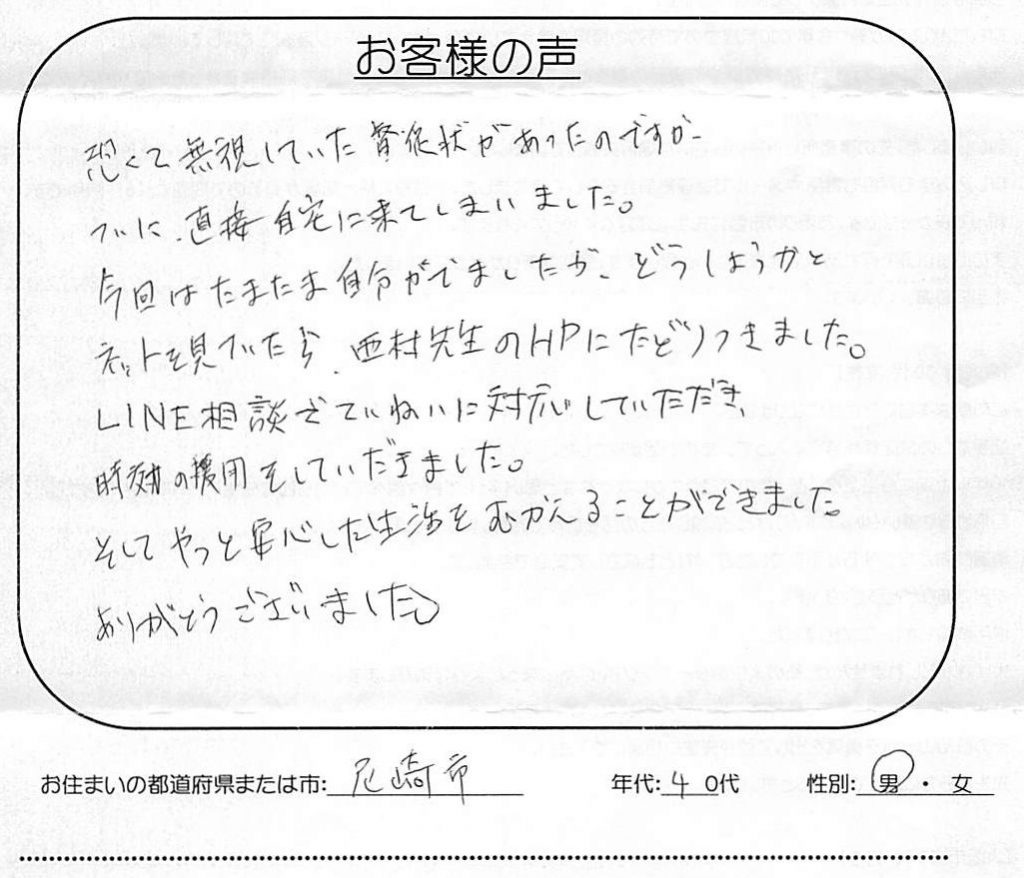 お客様の声
恐くて無視していた督促状があったのですが
ついに、直接自宅に来てしまいました。
今回はたまたま自分がでましたが どうしようかと
ネットを見ていたら、西村先生のHPにたどりつきました。
LINE相談でていねいに対応していただき
時効の援用をしていだきました。
そしてやっと安心した生活をむかえることができました。
ありがとうございました。
お住まいの都道府県または市: 尼崎市 年代: 40代 性別: 男・女